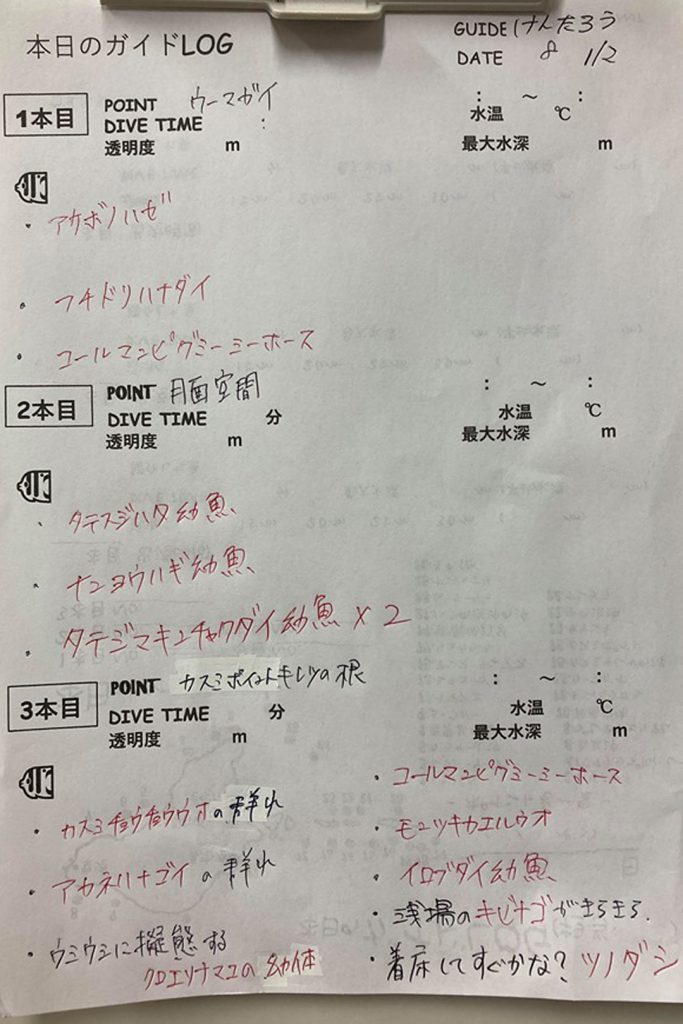 本日のガイドLOG
GUIDE けんたろう
DATE 8 1/2
1本目
POINT ウーマガイ
DIVE TIME :
透明度 m
: ～ :
水温 ℃
最大水深 m
・アケボノハゼ
・フチドリハナダイ
・コールマンピグミーシーホース
2本目
POINT 月面空間
DIVE TIME 分
透明度 m
: ～ :
水温 ℃
最大水深 m
・タテスジハタ幼魚
・ナンヨウハギ幼魚
・タテジマキンチャクダイ幼魚×2
3本目
POINT カスミポイントキレツの根
DIVE TIME 分
透明度 m
: ～ :
水温 ℃
最大水深 m
・カスミチョウチョウウオの群れ
・アカネハナゴイの群れ
・ウミウシに擬態する
クロエリナマコの幼体
・コールマンピグミーシーホース
・モンツキカエルウオ
・イロブダイ幼魚
・浅場のキビナゴがきらきら.
・着床してすぐかな?ツノダシ